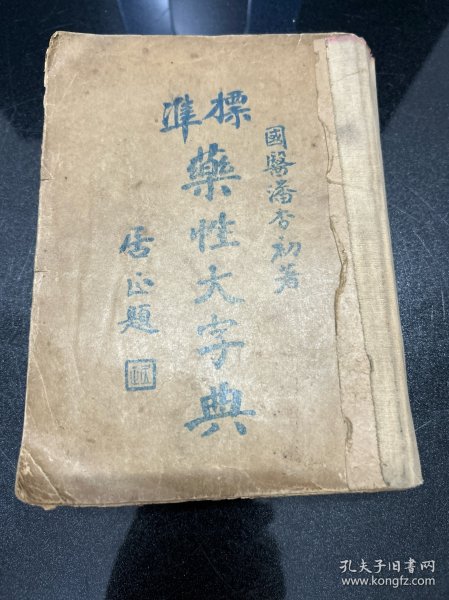 國醫潘杏初著
標準
藥性大字典
居正題
孔夫子旧书网
www.kongfz.com